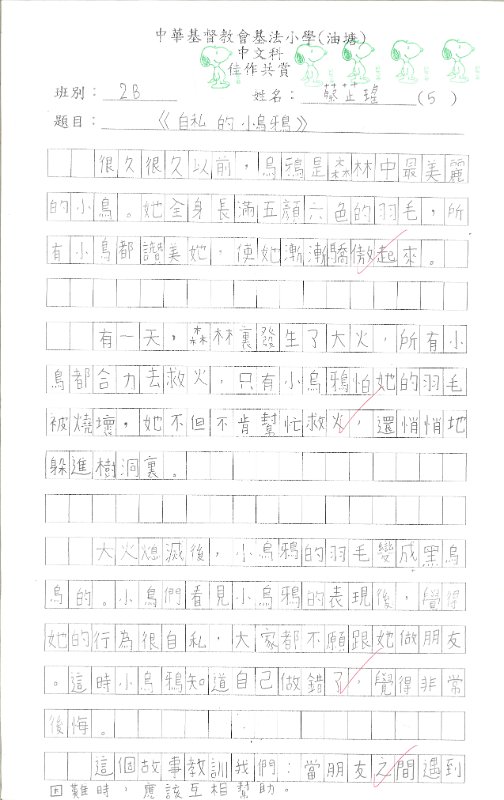 中華基督教會基法小學(油塘)
中文科
佳作共賞
班別：2B 姓名：蔡芷瑋(5)
題目：《自私的小烏鴉》
很久很久以前，烏鴉是森林中最美麗
的小鳥。她全身長滿五顏六色的羽毛，所
有小鳥都讚美她，使她漸漸驕傲起來。
有一天，森林裏發生了大火，所有小
鳥都合力去救火，只有小烏鴉怕她的羽毛
被燒壞，她不但不肯幫忙救火，還悄悄地
躲進樹洞裏。
大火熄滅後，小烏鴉的羽毛變成黑烏
烏的。小鳥們看見小烏鴉的表現後，覺得
她的行為很自私，大家都不願跟她做朋友
。這時小烏鴉知道自己做錯了，覺得非常
後悔。
這個故事教訓我們：當朋友之間遇到
困難時，應該互相幫助。